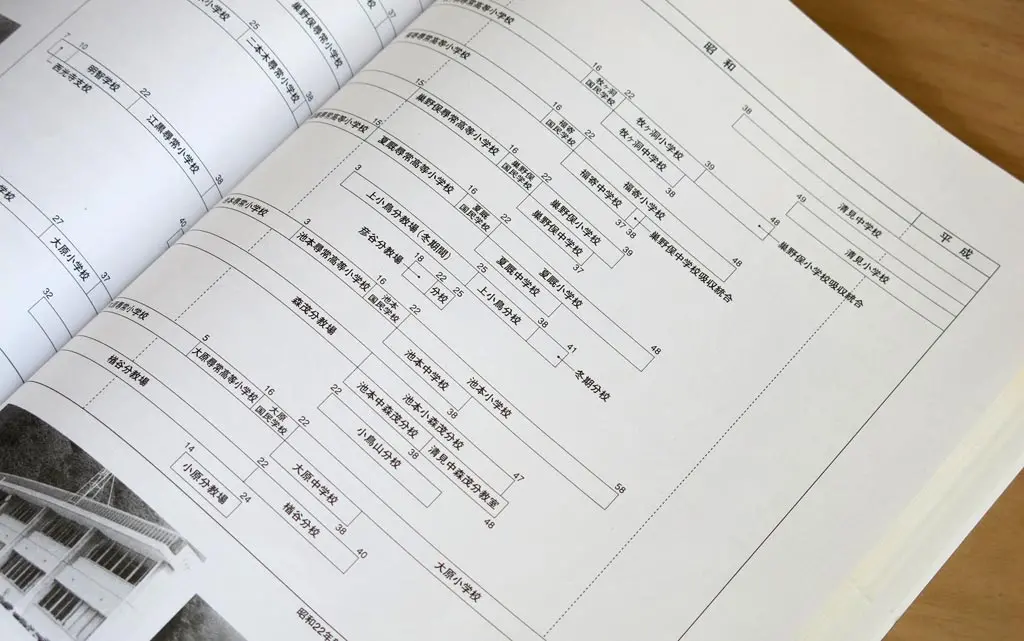 7
10
明智学校
西光寺支校
22
江黒尋常小学校
38
尋常高等小学校
25
二本木尋常小学校
38
巣野俣尋常高等小学校
37
27
大原小学校
37
32
40
昭和
平成
尋常高等小学校
16
牧ヶ洞
国民学校
22
牧ヶ洞小学校
牧ヶ洞中学校
39
38
38
48
49
清見中学校
清見小学校
巣野俣小学校吸収統合
尋常高等小学校
16
福寄
国民学校
22
福寄小学校
福寄中学校
37 38
48
巣野俣中学校吸収統合
15
巣野俣尋常高等小学校
16
巣野俣
国民学校
22
巣野俣小学校
巣野俣中学校
39
37
常高等小学校
15
夏厩尋常高等小学校
16
夏厩
国民学校
22
夏厩小学校
夏厩中学校
48
38
3
上小鳥分教場(冬期間)
25
上小鳥分校
41
冬期分校
彦谷分教場
18
22
分校
25
尋常小学校
3
池本尋常高等小学校
16
池本
国民学校
22
池本小学校
池本中学校
38
58
森茂分教場
22
池本小森茂分校
池本中森茂分校
38
清見中森茂分教室
47
48
小鳥山分校
尋常小学校
5
大原尋常高等小学校
16
大原
国民学校
22
大原中学校
38
大原小学校
楢谷分教場
22
楢谷分校
40
14
小原分教場
24
昭和22年